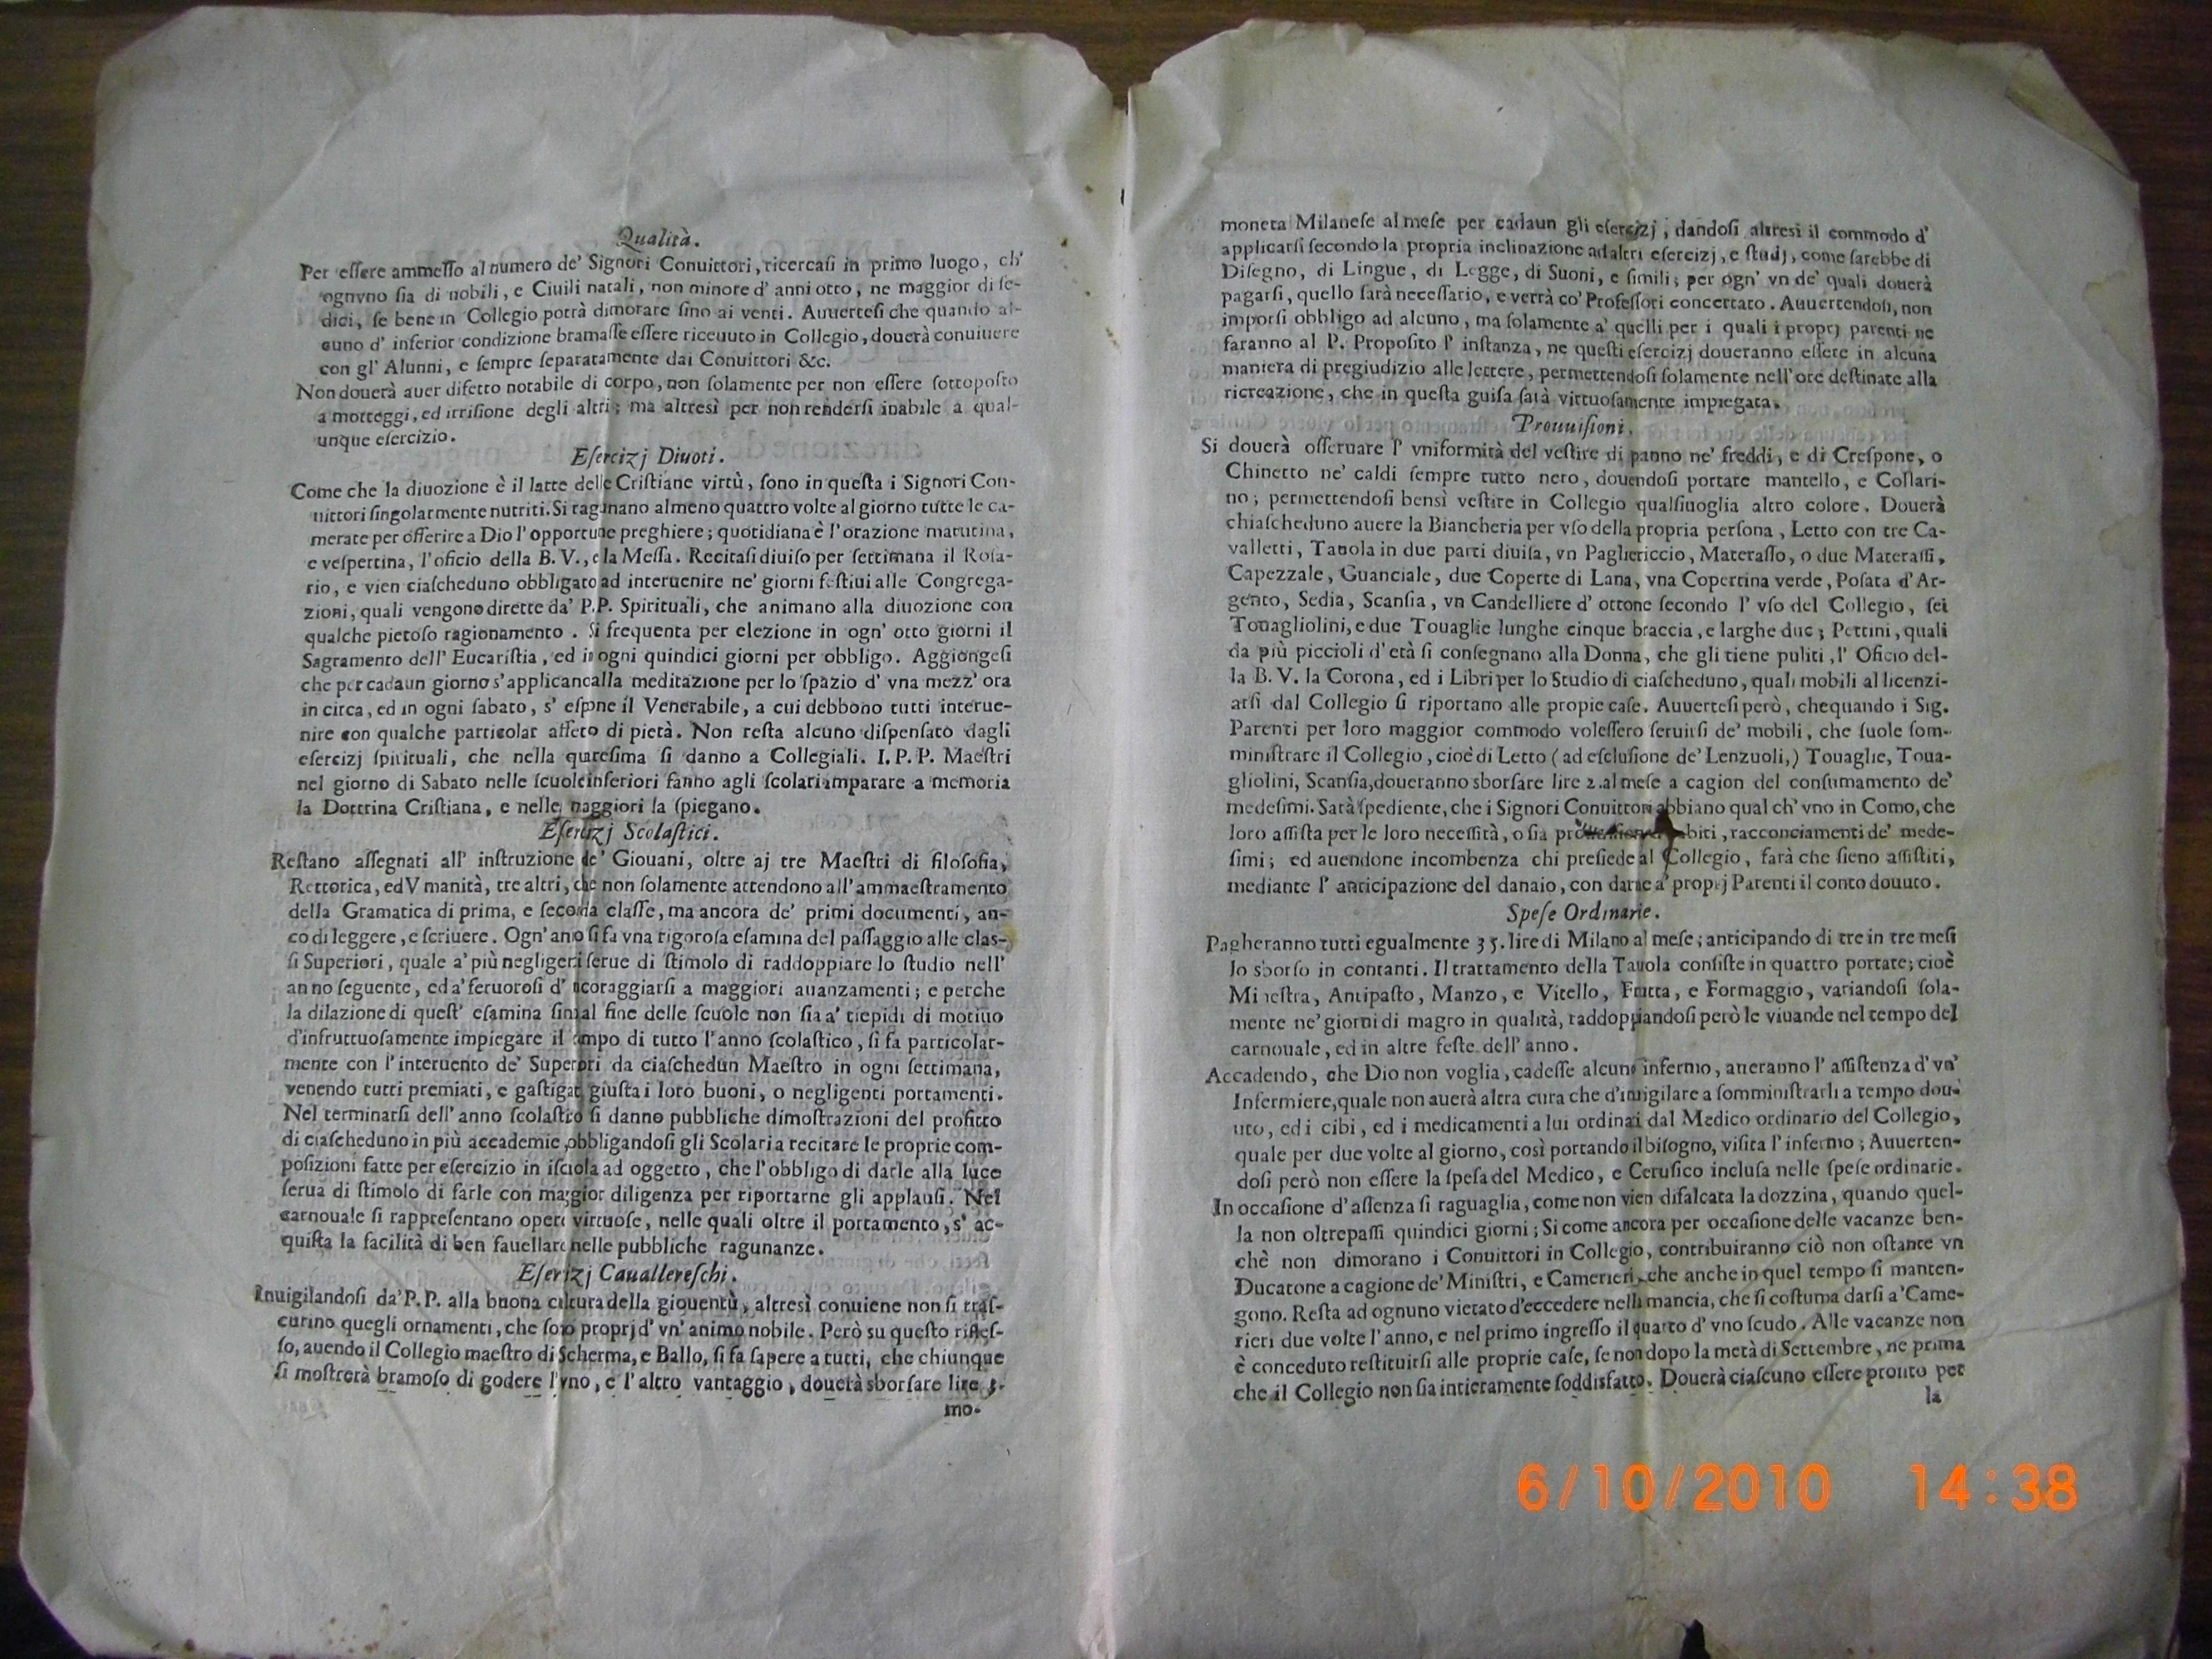 Qualità.
Per eſſere ammeſſo al numero de' Signori Conuittori, ricercaſi in primo luogo, ch'
ognvno ſia di nobili, e Ciuili natali, non minore d' anni otto, ne maggior di ſe-
dici, ſe bene in Collegio potrà dimorare ſino ai venti. Auuerteſi che quando al-
cuno d' inferior condizione bramaſſe eſſere riceuuto in Collegio, douerà conuiuere
con gl' Alunni, e ſempre ſeparatamente dai Conuittori &c.
Non douerà auer difetto notabile di corpo, non ſolamente per non eſſere ſottopoſto
a motteggi, ed irriſione degli altri; ma altresì per non renderſi inabile a qual-
unque eſercizio.
Eſercizj Diuoti.
Come che la diuozione è il latte delle Criſtiane virtù, ſono in queſta i Signori Con-
uittori ſingolarmente nutriti. Si ragunano almeno quattro volte al giorno tutte le ca-
merate per offerire a Dio l' opportune preghiere; quotidiana è l' orazione matutina,
e veſpertina, l' oficio della B. V., e la Meſſa. Recitaſi diuiſo per ſettimana il Roſa-
rio, e vien ciaſcheduno obbligato ad interuenire ne' giorni feſtiui alle Congrega-
zioni, quali vengono dirette da' P.P. Spirituali, che animano alla diuozione con
qualche pietoſo ragionamento. Si frequenta per elezione in ogn' otto giorni il
Sagramento dell' Eucariſtia, ed in ogni quindici giorni per obbligo. Aggiongeſi
che per cadaun giorno s' applicano alla meditazione per lo ſpazio d' vna mezz' ora
in circa, ed in ogni ſabato, s' eſpone il Venerabile, a cui debbono tutti interue-
nire con qualche particolar affeto di pietà. Non reſta alcuno diſpenſato dagli
eſercizj ſpirituali, che nella quareſima ſi danno a Collegiali. I. P. P. Maeſtri
nel giorno di Sabato nelle ſcuole inferiori fanno agli ſcolari imparare a memoria
la Dottrina Criſtiana, e nelle maggiori la ſpiegano.
Eſercizj Scolaſtici.
Reſtano aſſegnati all' inſtruzione de' Giouani, oltre aj tre Maeſtri di filoſofia,
Rettorica, ed Vmanità, tre altri, che non ſolamente attendono all' ammaeſtramento
della Gramatica di prima, e ſeconda claſſe, ma ancora de' primi documenti, an-
co di leggere, e ſcriuere. Ogn' ano ſi fa vna rigoroſa eſamina del paſſaggio alle claſ-
ſi Superiori, quale a' più negligenti ſerue di ſtimolo di raddoppiare lo ſtudio nell'
anno ſeguente, ed a' feruoroſi d' incoraggiarſi a maggiori auanzamenti; e perche
la dilazione di queſt' eſamina ſin al fine delle ſcuole non ſia a' tiepidi di motiuo
d'infruttuoſamente impiegare il tempo di tutto l'anno ſcolaſtico, ſi fa particolar-
mente con l' interuento de' Superiori da ciaſchedun Maeſtro in ogni ſettimana,
venendo tutti premiati, e gaſtigati giuſta i loro buoni, o negligenti portamenti.
Nel terminarſi dell' anno ſcolaſtico ſi danno pubbliche dimoſtrazioni del profitto
di ciaſcheduno in più accademie obbligandoſi gli Scolari a recitare le proprie com-
poſizioni fatte per eſercizio in iſcuola ad oggetto, che l'obbligo di darle alla luce
ſerua di ſtimolo di farle con maggior diligenza per riportarne gli applauſi. Nel
carnouale ſi rappreſentano opere virtuoſe, nelle quali oltre il portamento, s' ac-
quiſta la facilità di ben fauellare nelle pubbliche ragunanze.
Eſercizj Cauallereſchi.
Inuigilandoſi da' P.P. alla buona cultura della giouentù, altresì conuiene non ſi traſ-
curino quegli ornamenti, che ſono proprj d' vn' animo nobile. Però su queſto rifleſ-
ſo, auendo il Collegio maeſtro di Scherma, e Ballo, ſi fa ſapere a tutti, che chiunque
ſi moſtrerà bramoſo di godere l' vno, e l' altro vantaggio, douerà sborſare lire 3.
mo-
moneta Milaneſe al meſe per cadaun gli eſercizj, dandoſi altresì il commodo d'
applicarſi ſecondo la propria inclinazione ad altri eſercizj, e ſtudj, come ſarebbe di
Diſegno, di Lingue, di Legge, di Suoni, e ſimili; per ogn' vn de' quali douerà
pagarſi, quello ſarà neceſſario, e verrà co' Profeſſori concertato. Auuertendoſi, non
imporſi obbligo ad alcuno, ma ſolamente a' quelli per i quali i proprj parenti ne
faranno al P. Propoſito l' inſtanza, ne queſti eſercizj doueranno eſſere in alcuna
maniera di pregiudizio alle lettere, permettendoſi ſolamente nell' ore deſtinate alla
ricreazione, che in queſta guiſa ſarà virtuoſamente impiegata.
Prouuiſioni.
Si douerà oſſeruare l' vniformità del veſtire di panno ne' freddi, e di Creſpone, o
Chinetto ne' caldi ſempre tutto nero, douendoſi portare mantello, e Collari-
no; permettendoſi bensì veſtire in Collegio qualſiuoglia altro colore. Douerà
chiaſcheduno auere la Biancheria per vſo della propria perſona, Letto con tre Ca-
valletti, Tauola in due parti diuiſa, vn Pagliericcio, Materaſſo, o due Materaſſi,
Capezzale, Guanciale, due Coperte di Lana, vna Copertina verde, Poſata d' Ar-
gento, Sedia, Scanſia, vn Candelliere d' ottone ſecondo l' vſo del Collegio, ſei
Touagliolini, e due Touaglie lunghe cinque braccia, e larghe due; Pettini, quali
da più piccioli d' età ſi conſegnano alla Donna, che gli tiene puliti, l' Oficio del-
la B. V. la Corona, ed i Libri per lo Studio di ciaſcheduno, quali mobili al licenzi-
arſi dal Collegio ſi riportano alle propie caſe. Auuerteſi però, chequando i Sig.
Parenti per loro maggior commodo voleſſero ſeruirſi de' mobili, che ſuole ſom-
miniſtrare il Collegio, cioè di Letto (ad eſcluſione de' Lenzuoli,) Touaglie, Toua-
gliolini, Scanſia, doueranno sborſare lire 2. al meſe a cagion del conſumamento de'
medeſimi. Sarà ſpediente, che i Signori Conuittori abbiano qual ch' vno in Como, che
loro aſſiſta per le loro neceſſità, o ſia abiti, racconciamenti de' mede-
ſimi; ed auendone incombenza chi preſiede al Collegio, farà che ſieno aſſiſtiti,
mediante l' anticipazione del danaio, con darne a' proprj Parenti il conto douuto.
Speſe Ordinarie.
Pagheranno tutti egualmente 35. lire di Milano al meſe; anticipando di tre in tre meſi
lo sborſo in contanti. Il trattamento della Tauola conſiſte in quattro portate; cioè
Mineſtra, Antipaſto, Manzo, e Vitello, Frutta, e Formaggio, variandoſi ſola-
mente ne' giorni di magro in qualità, raddoppiandoſi però le viuande nel tempo del
carnouale, ed in altre feſte dell' anno.
Accadendo, che Dio non voglia, cadeſſe alcuno infermo, aueranno l' aſſiſtenza d' vn'
Infermiere, quale non auerà altra cura che d' inuigilare a ſomminiſtrarli a tempo dou-
uto, ed i cibi, ed i medicamenti a lui ordinai dal Medico ordinario del Collegio,
quale per due volte al giorno, così portando il biſogno, viſita l' infermo; Auuerten-
doſi però non eſſere la ſpeſa del Medico, e Ceruſico incluſa nelle ſpeſe ordinarie.
In occaſione d' aſſenza ſi raguaglia, come non vien difalcata la dozzina, quando quel-
la non oltrepaſſi quindici giorni; Si come ancora per occaſione delle vacanze ben-
chè non dimorano i Conuittori in Collegio, contribuiranno ciò non oſtante vn
Ducatone a cagione de' Miniſtri, e Camerieri, che anche in quel tempo ſi manten-
gono. Reſta ad ognuno vietato d'eccedere nella mancia, che ſi coſtuma darſi a' Came-
rieri due volte l' anno, e nel primo ingreſſo il quarto d' vno ſcudo. Alle vacanze non
è conceduto reſtituirſi alle proprie caſe, ſe non dopo la metà di Settembre, ne prima
che il Collegio non ſia intieramente ſoddisfatto. Douerà ciaſcuno eſſere pronto per
la
6/10/2010 14:38